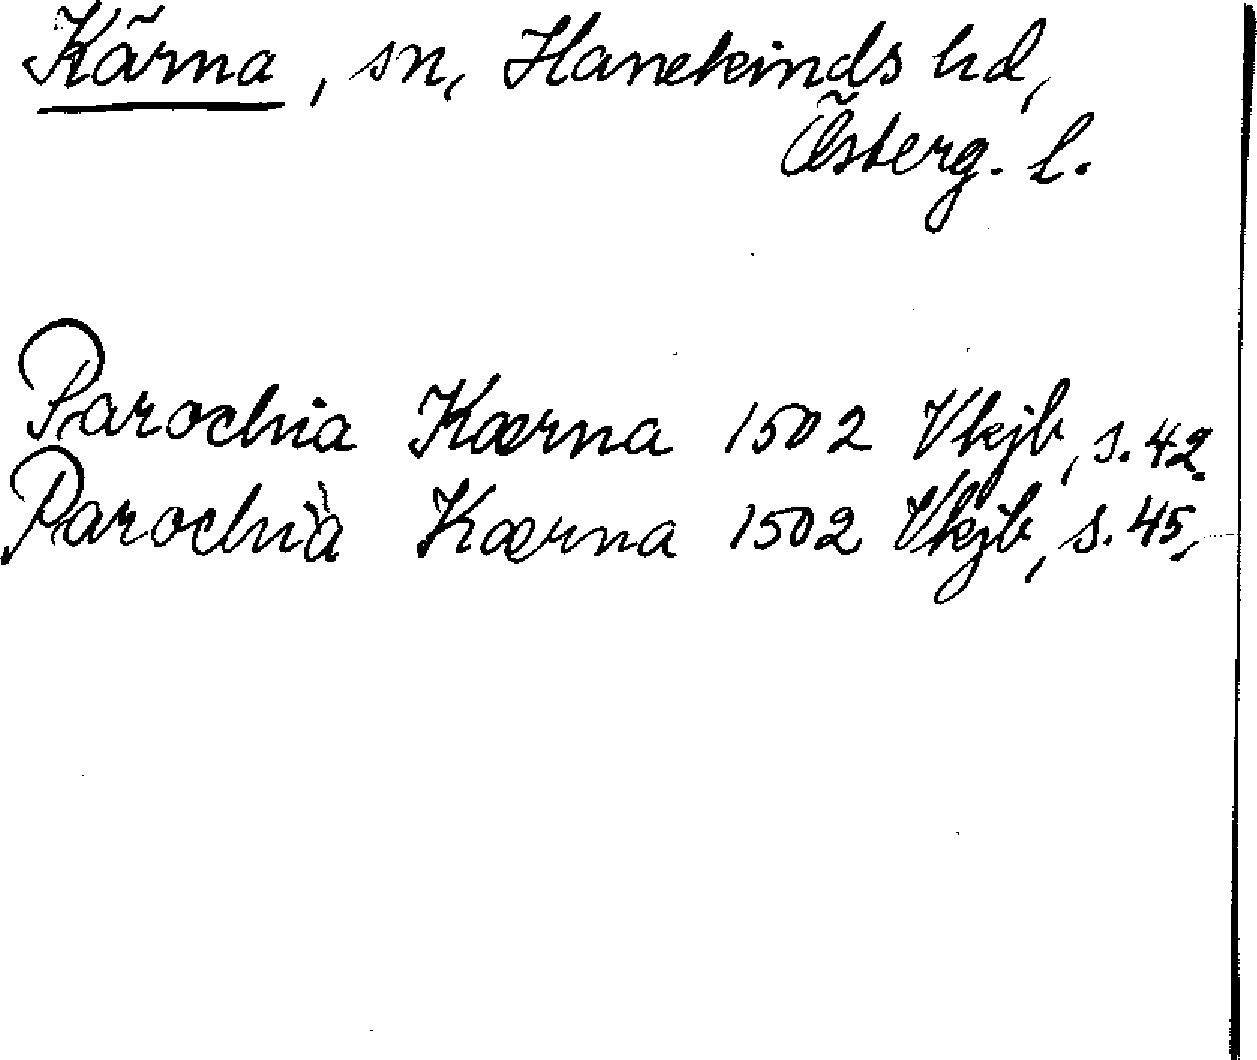 Kärna, sn, Hanekinds hd,
Österg. l.
Parochia Kærna 1502 Vkjb, s. 42.
Parochia Kærna 1502 Vkjb, s. 45,